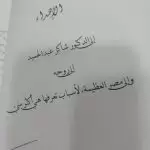 الإهداء
إلى الدكتور شاكر عبد الحميد
إلى روحه
وإلى مصر العظيمة، لأسباب تعرفها هي أكثر مني